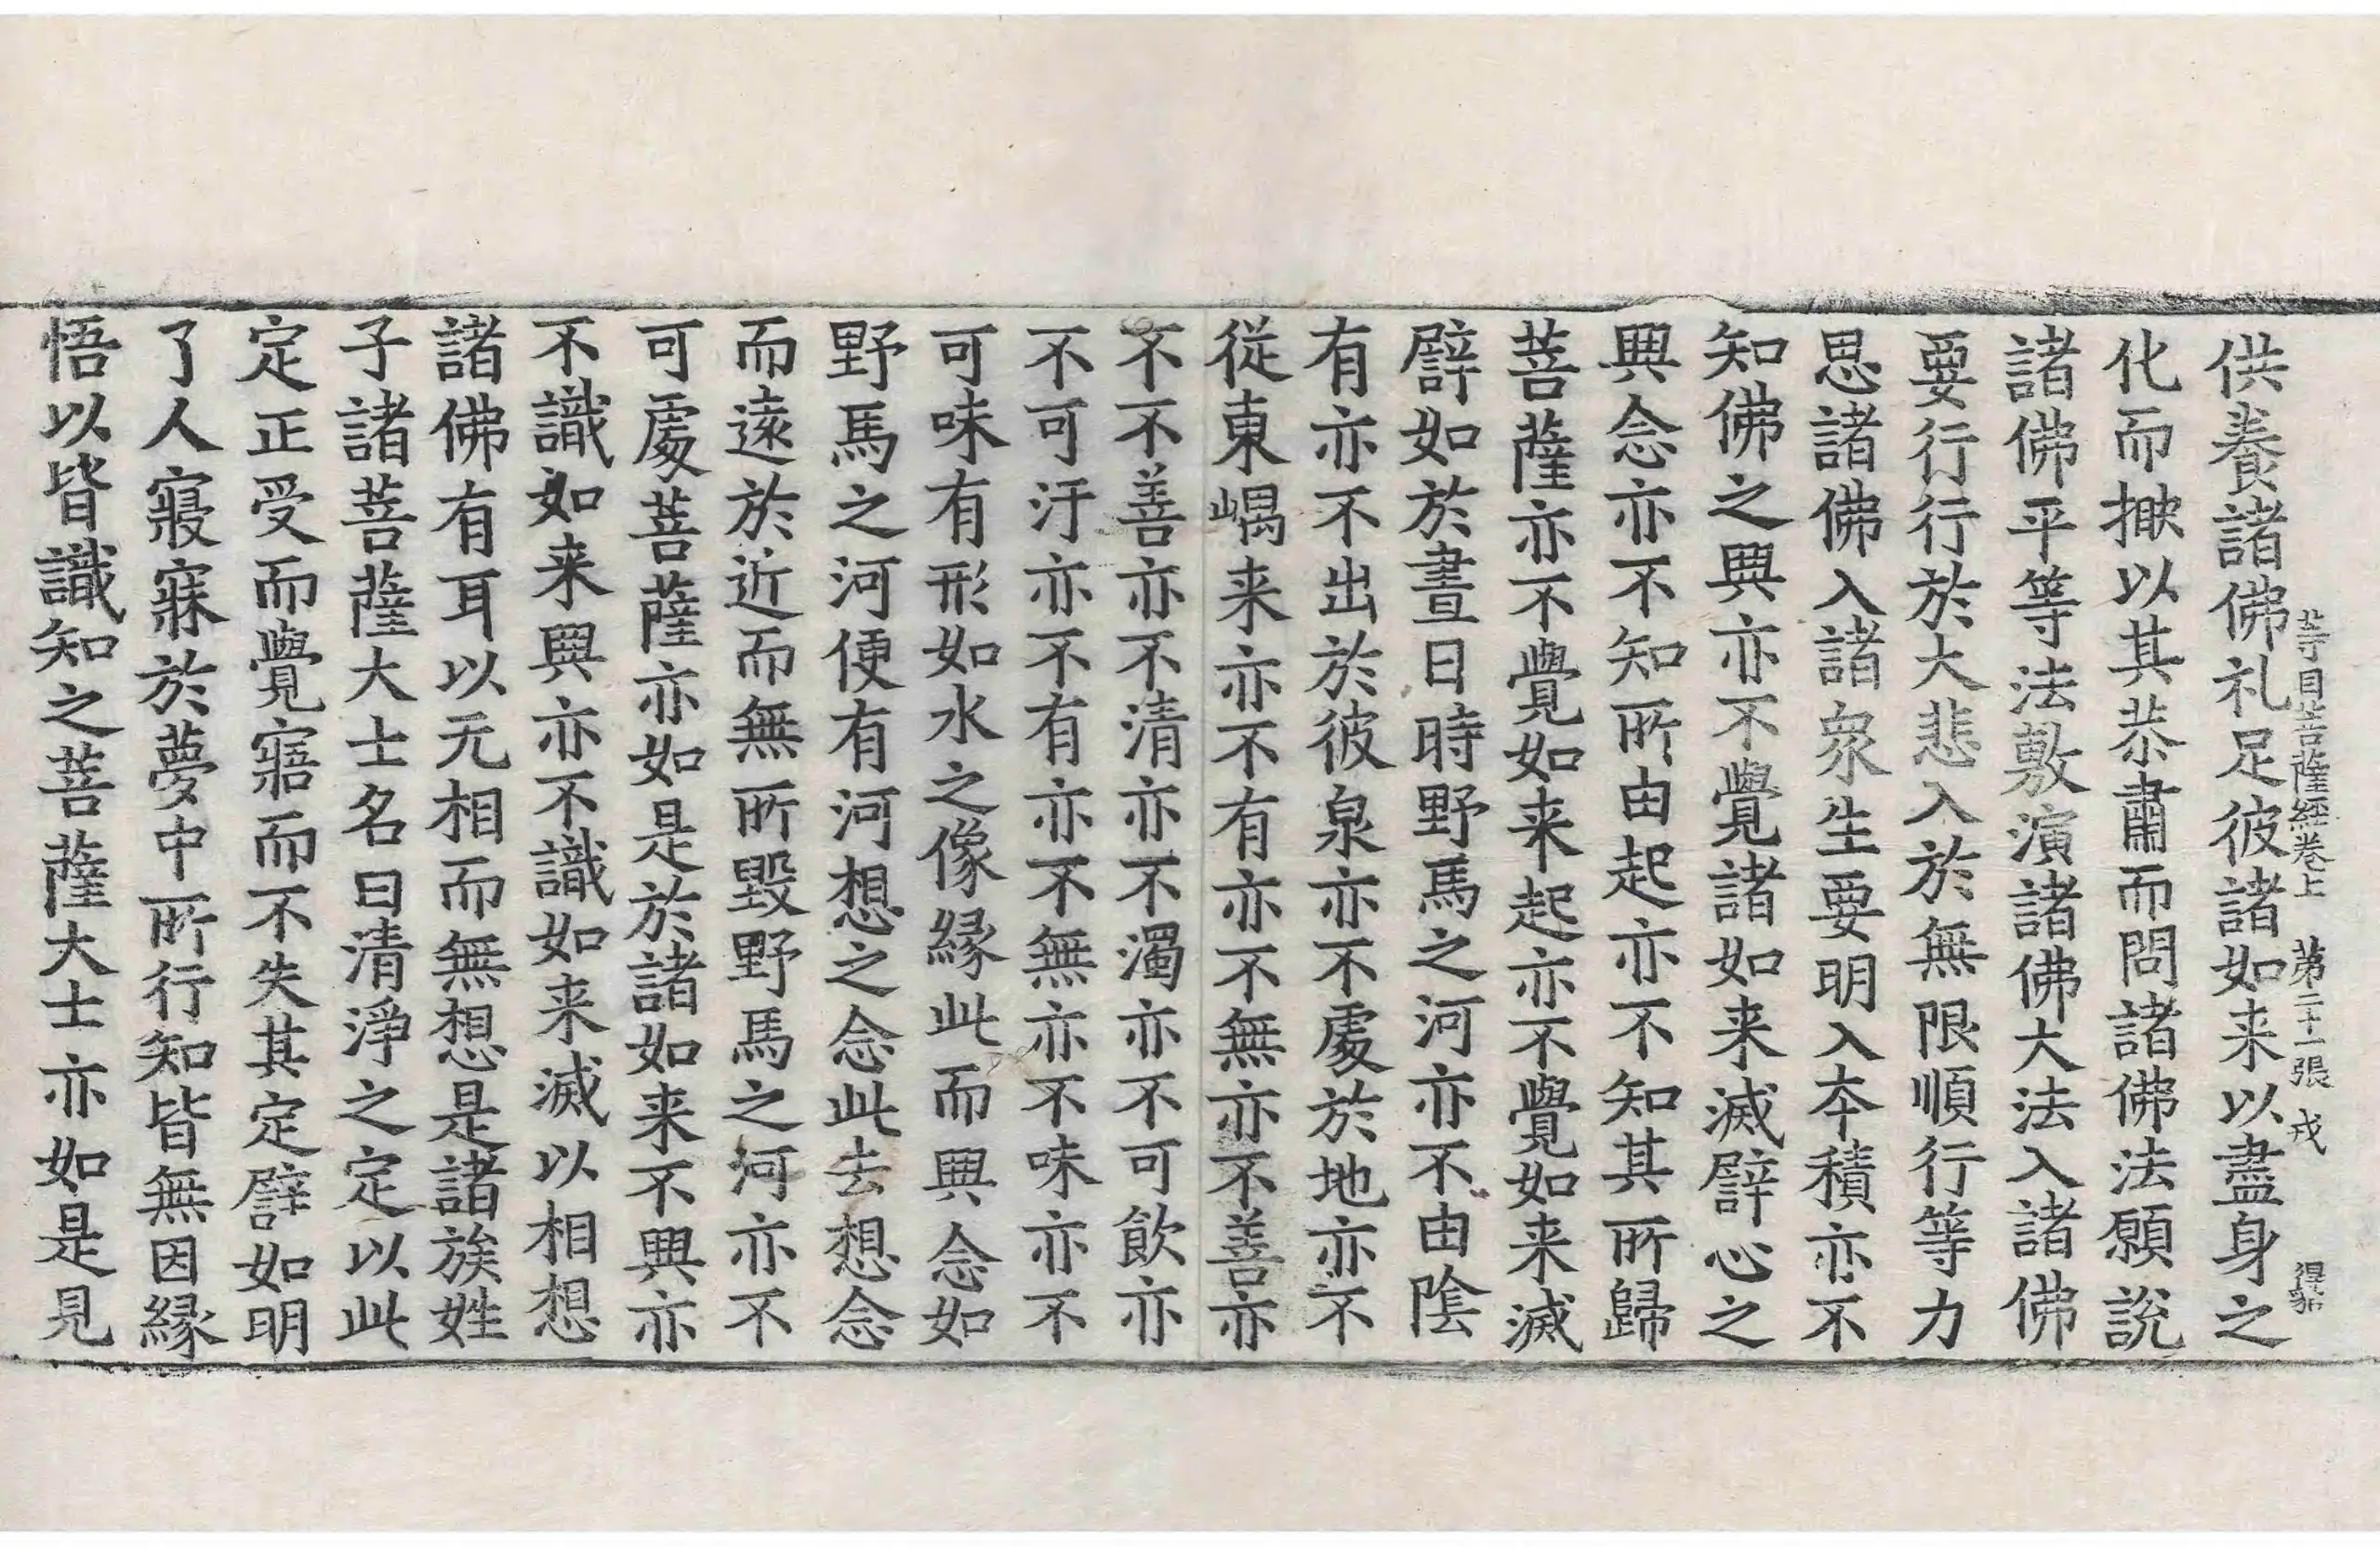 等目菩薩經卷上　第二十一張　戎
供養諸佛礼足彼諸如来以盡身之
化而揿以其恭肅而問諸佛法願說
諸佛平等法敷演諸佛大法入諸佛
要行行於大悲入於無限順行等力
思諸佛入諸衆生要明入本積亦不
知佛之興亦不覺諸如来滅譬心之
興念亦不知所由起亦不知其所歸
菩薩亦不覺如来起亦不覺如来滅
譬如於晝日時野馬之河亦不由陰
有亦不出於彼泉亦不處於地亦不
從東嵎来亦不有亦不無亦不善亦
不不善亦不清亦不濁亦不可飲亦
不可汙亦不有亦不無亦不味亦不
可味有形如水之像緣此而興念如
野馬之河便有河想之念此去想念
而遠於近而無所毀野馬之河亦不
可處菩薩亦如是於諸如来不興亦
不識如来興亦不識如来滅以相想
諸佛有耳以无相而無想是諸族姓
子諸菩薩大士名曰清淨之定以此
定正受而覺寤而不失其定譬如明
了人寢寐於夢中所行知皆無因緣
悟以皆識知之菩薩大士亦如是見